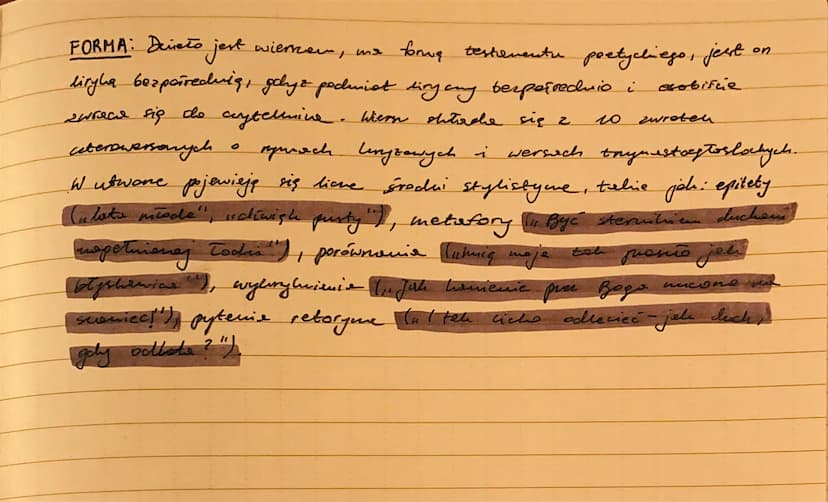 FORMA: Dzieło jest wierszem, ma formę testamentu poetyckiego, jest on
liryką bezpośrednią, gdyż podmiot liryczny bezpośrednio i osobiście
zwraca się do czytelnika. Wiersz składa się z 10 zwrotek
czterowersowych o rymach krzyżowych i wersach trzynastozgłoskowych.
W utworze pojawiają się liczne środki stylistyczne, takie jak: epitety
("lata młode", "dźwięk pusty"), metafory ("Być sternikiem duchami
napełnionej łodzi"), porównania ("imię moje tak przeszło jak
błyskawica"), wykrzyknienie ("Jak kamienie przez Boga rzucane na
szaniec!"), pytanie retoryczne ("I tak cicho odlecieć – jak duch,
gdy odlata?").